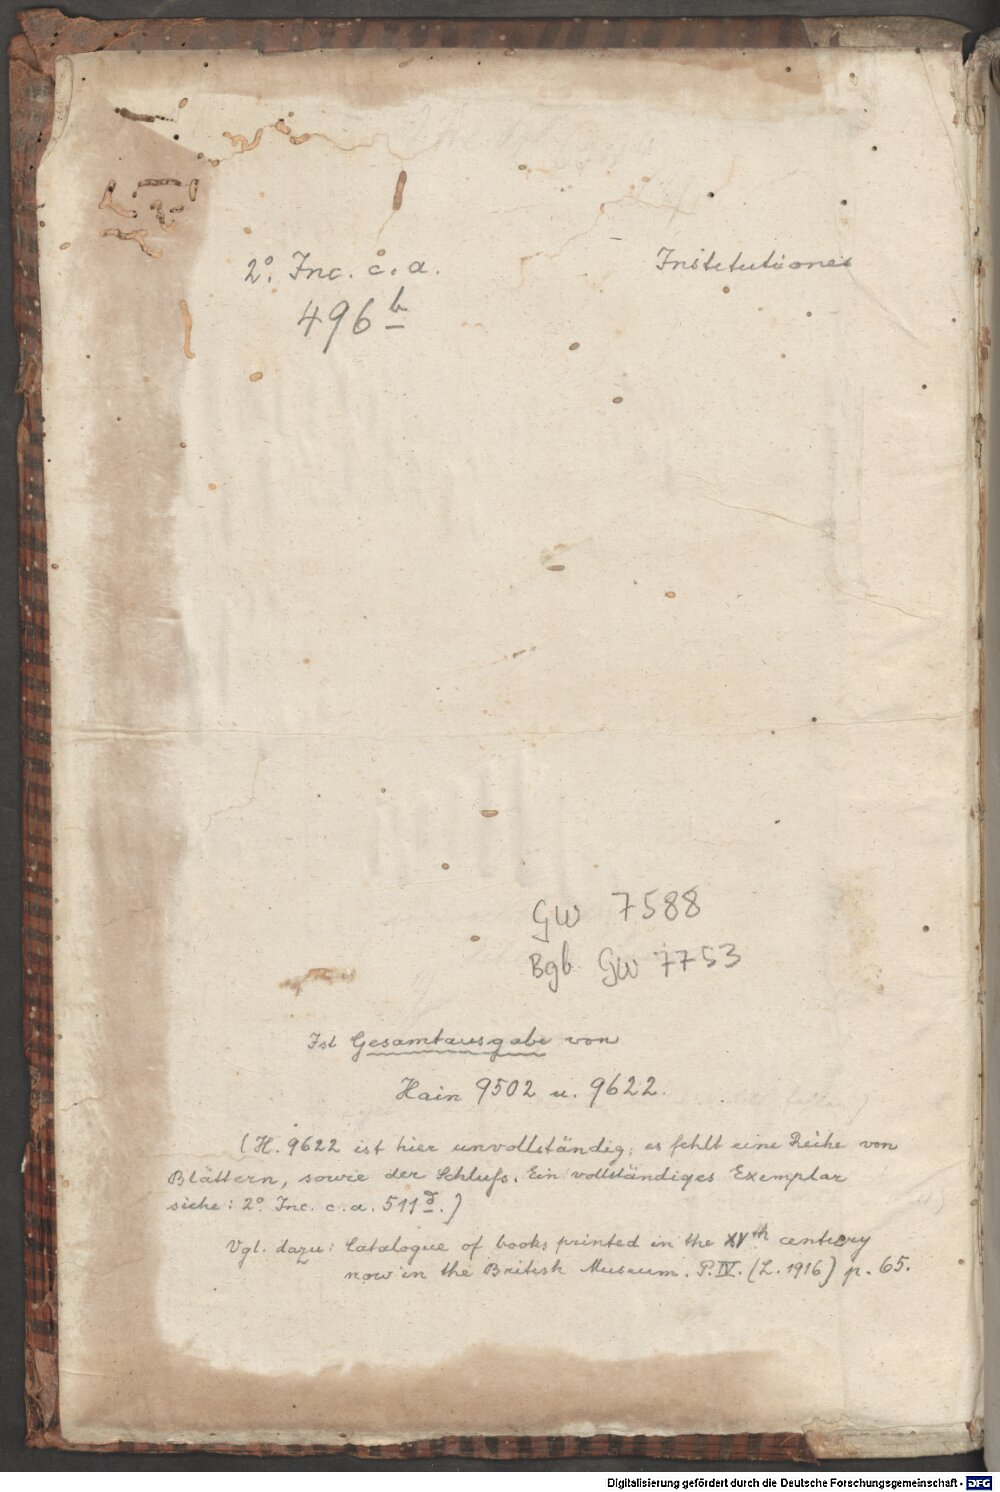 2° Inc. c. a. Institutiones
496 b
GW 7588
Bgb. GW 7753
Ist Gesamtausgabe von
Hain 9502 u. 9622.
(H. 9622 ist hier unvollständig; es fehlt eine Reihe von
Blättern, sowie der Schluß. Ein vollständiges Exemplar
siehe: 2° Inc. c. a. 511 d.)
Vgl. dazu: Catalogue of books printed in the XVth century
now in the British Museum. P. IV. (L. 1916) p. 65.
Digitalisierung gefördert durch die Deutsche Forschungsgemeinschaft - DFG